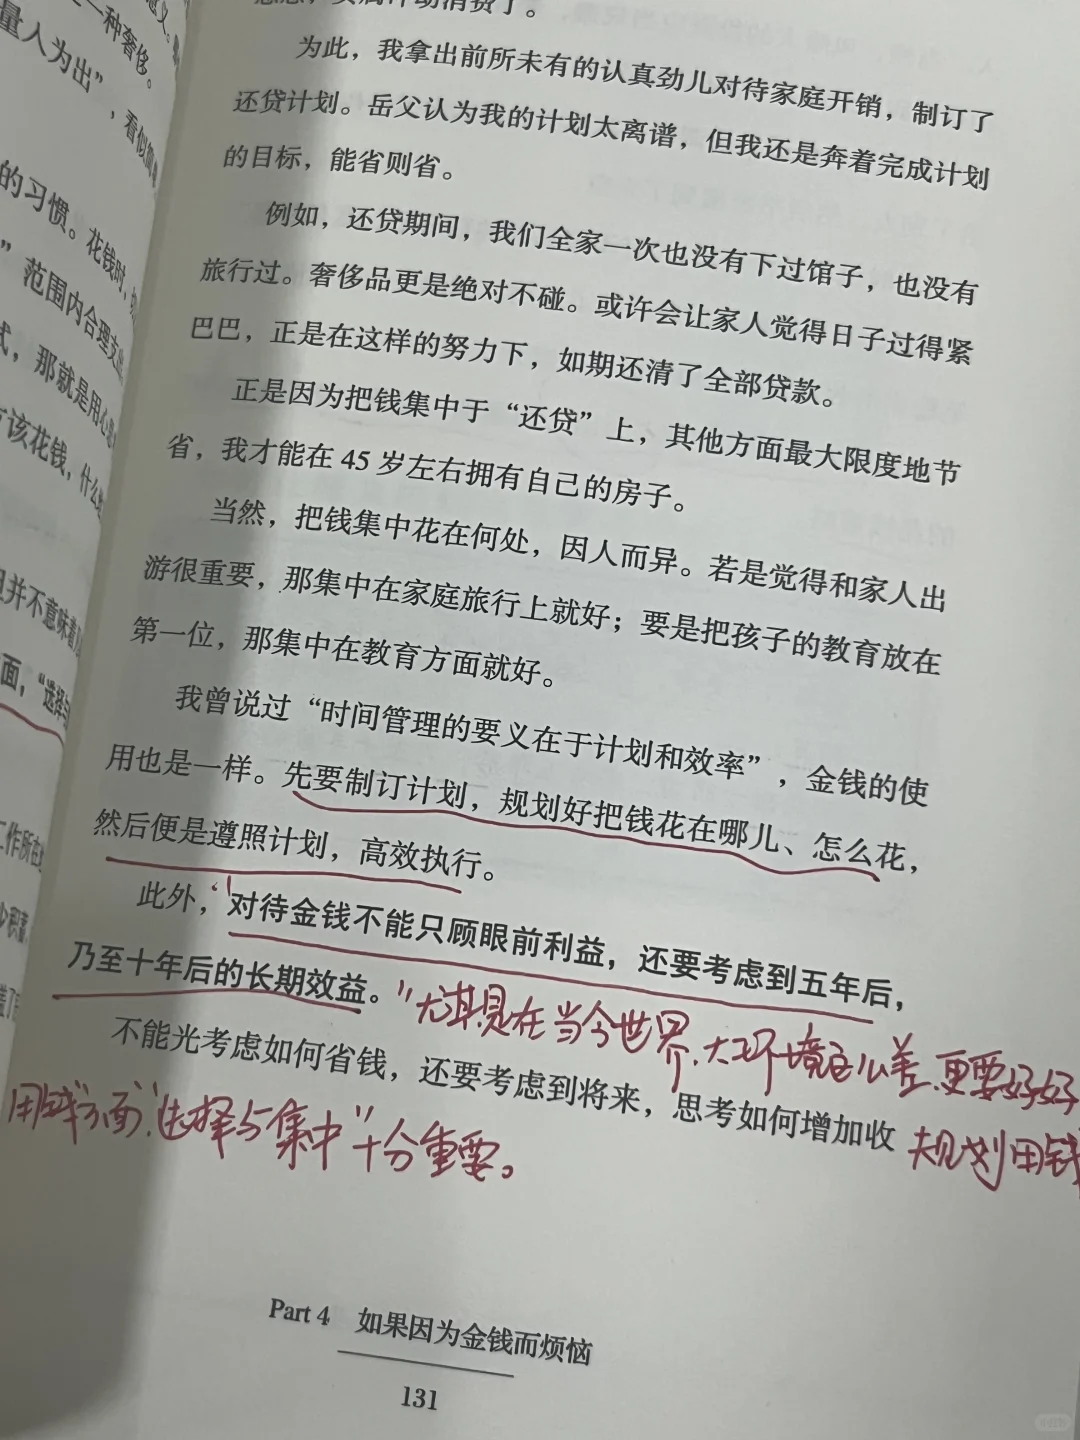 量入为出”，看似简
一种奢侈。
的习惯。花钱时，
”范围内合理支出
式，那就是用心
该花钱，什么
并不意味着
面，“选择与
工作所在
为此，我拿出前所未有的认真劲儿对待家庭开销，制订了
还贷计划。岳父认为我的计划太离谱，但我还是奔着完成计划
的目标，能省则省。
例如，还贷期间，我们全家一次也没有下过馆子，也没有
旅行过。奢侈品更是绝对不碰。或许会让家人觉得日子过得紧
巴巴，正是在这样的努力下，如期还清了全部贷款。
正是因为把钱集中于“还贷”上，其他方面最大限度地节
省，我才能在 45 岁左右拥有自己的房子。
当然，把钱集中花在何处，因人而异。若是觉得和家人出
游很重要，那集中在家庭旅行上就好；要是把孩子的教育放在
第一位，那集中在教育方面就好。
我曾说过“时间管理的要义在于计划和效率”，金钱的使
用也是一样。先要制订计划，规划好把钱花在哪儿、怎么花，
然后便是遵照计划，高效执行。
此外，“对待金钱不能只顾眼前利益，还要考虑到五年后，
乃至十年后的长期效益。”尤其是在当今世界，大环境这么差，更要好好
不能光考虑如何省钱，还要考虑到将来，思考如何增加收
规划用钱
用钱方面，“选择与集中”十分重要。
Part 4 如果因为金钱而烦恼
131